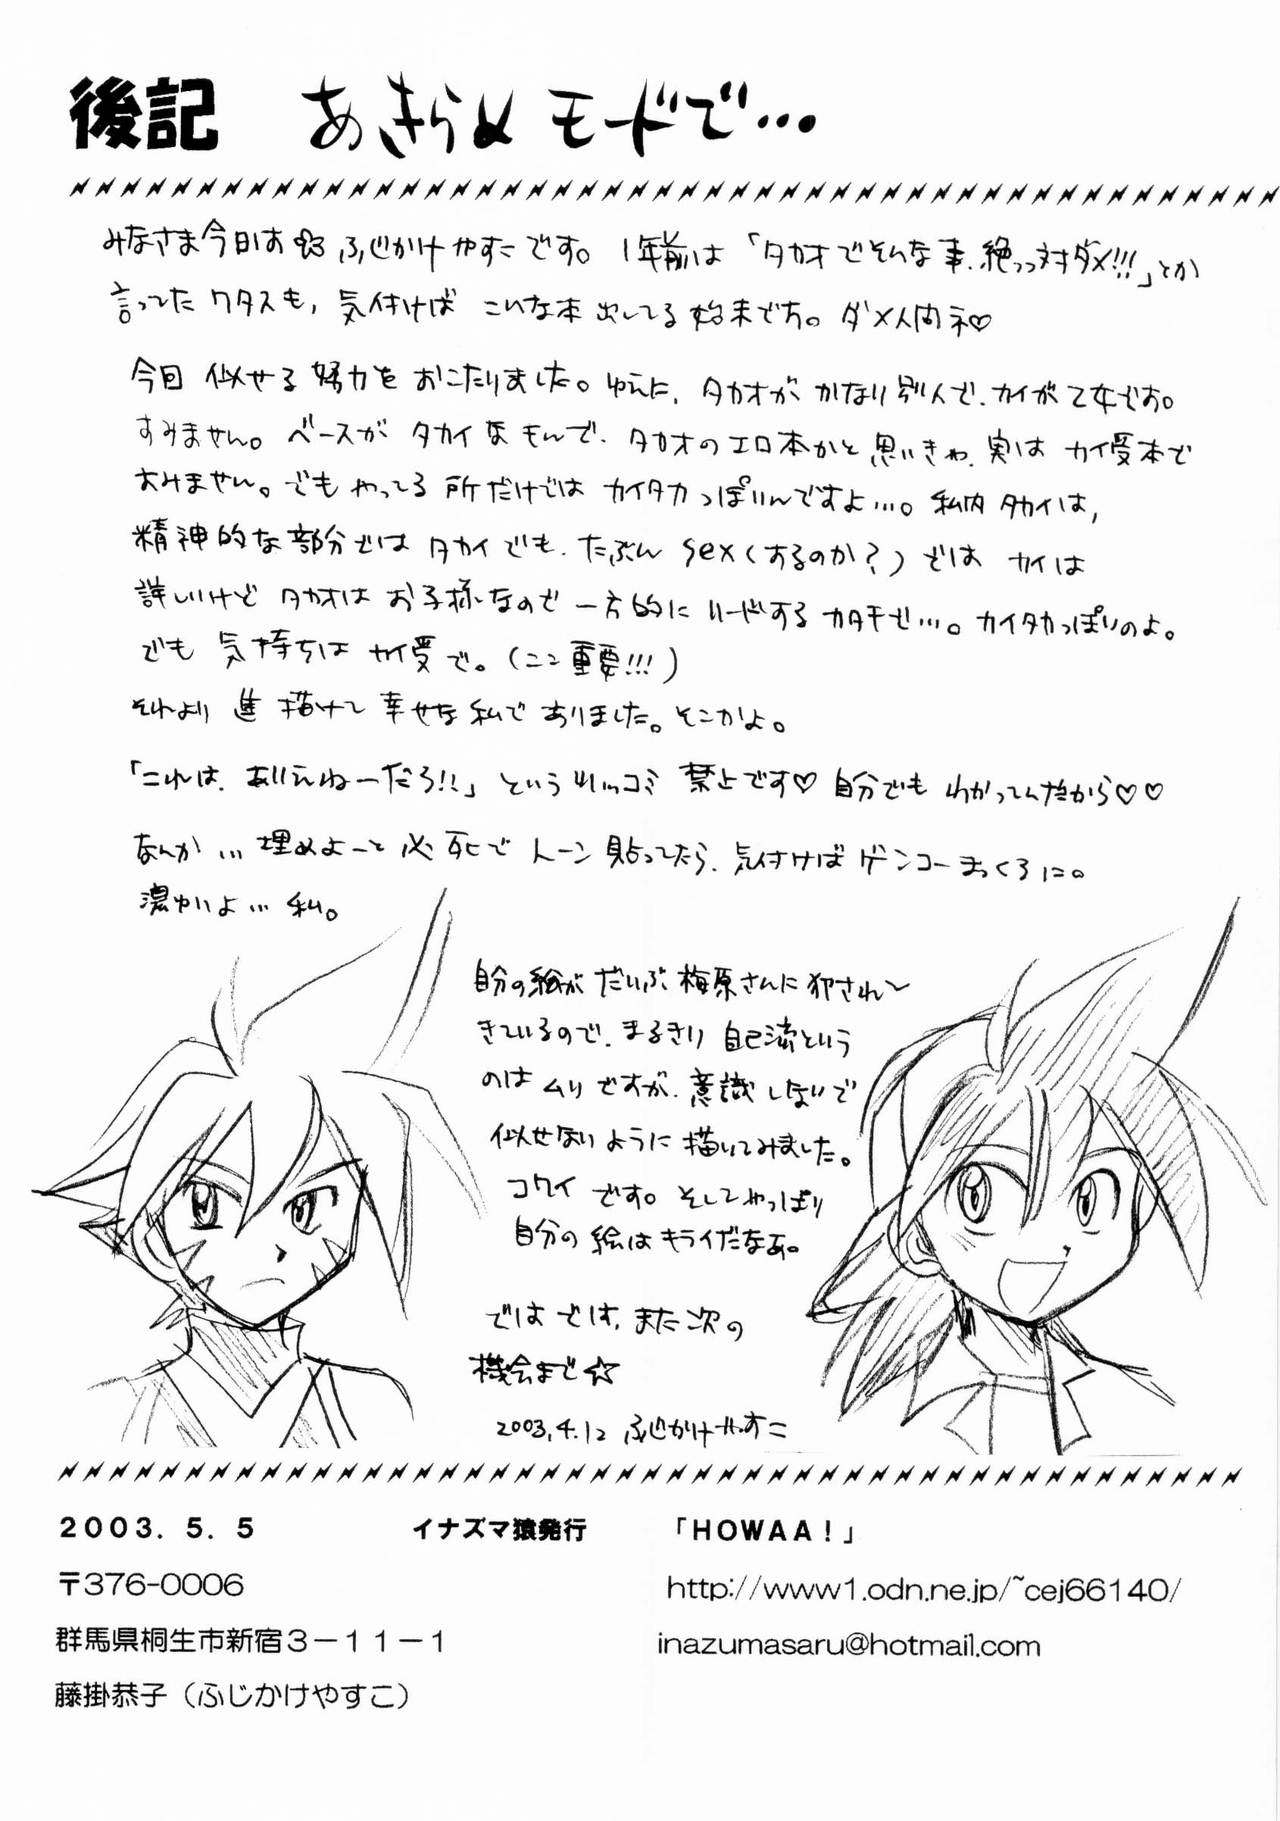 後記　あきらめモードで…
みなさま今日は ふじかけやすこです。1年前は「タカオでそんな事、絶っっ対ダメ!!!」とか
言ってたワタスも、気付けば こんな本出してる始末です。ダメ人間ネ♡
今回 似せる努力を おこたりました。ゆえに、タカオが かなり別人で、カイが乙女です。
すみません。ベースが タカイなもんで、タカオのエロ本かと思いきや、実は カイ受本で
すみません。でも やってる所だけでは カイタカっぽいんですよ…。私内 タカイは、
精神的な部分では タカイでも、たぶん sex(するのか?)では カイは
詳しいけど タカオは お子様なので 一方的に リードする カタチで…。カイタカっぽいのよ。
でも 気持ちは カイ受で。(ココ重要!!!)
それより 進 描けて 幸せな 私で ありました。そこかよ。
「これは、ありえねーだろ!!」という ツッコミ 禁止です♡ 自分でも わかってんだから♡♡
なんか…埋めよーと 必死で トーン 貼ってたら、気付けば ゲンコー まっくろに。
濃ゆいよ…私。
自分の絵が だいぶ 梅原さんに 犯されて
きているので、まるきり 自己流という
のは ムリですが、意識しないで
似せないように 描いてみました。
コワイ です。そして やっぱり
自分の 絵は キライだなあ。
では では、また 次の
機会まで☆
2003.4.12 ふじかけやすこ
2003. 5. 5　イナズマ猿発行　「HOWAA!」
〒376-0006　http://www1.odn.ne.jp/~cej66140/
群馬県桐生市新宿3-11-1　inazumasaru@hotmail.com
藤掛恭子（ふじかけやすこ）